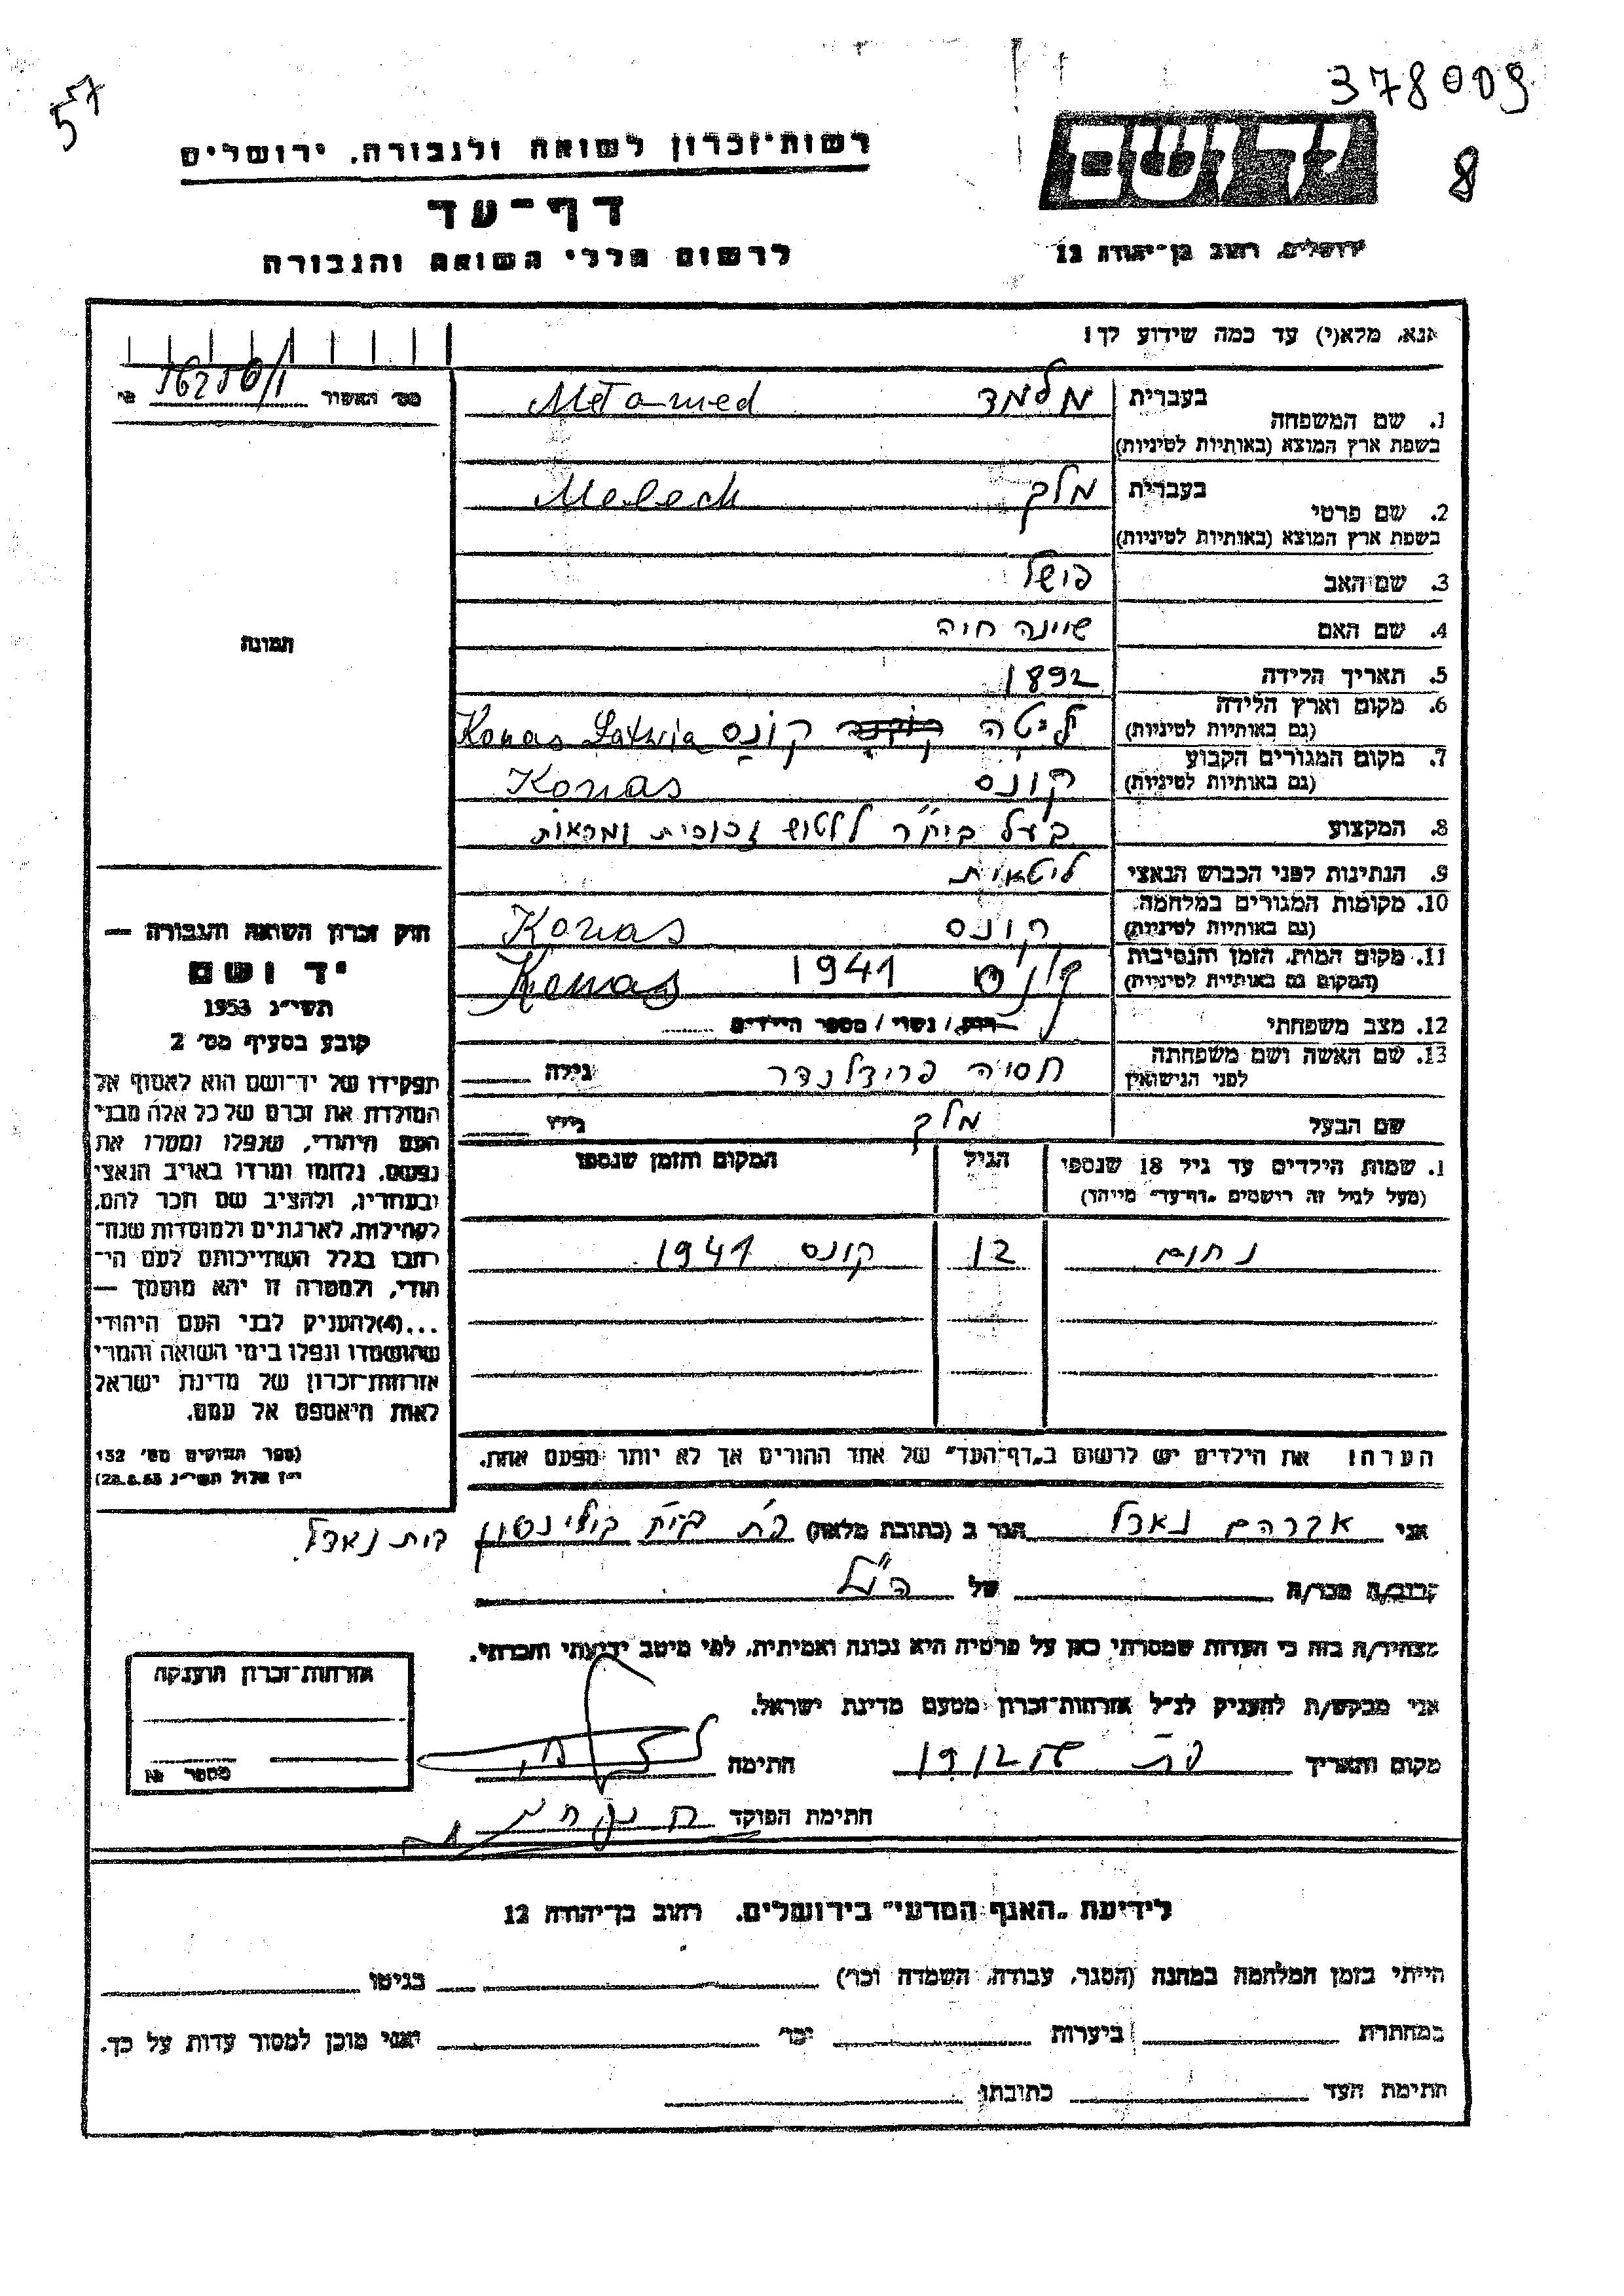 57
378009
8
רשות־זכרון לשואה ולגבורה, ירושלים
יד ושם
דף־עד
לרשום חללי השואה והגבורה
ירושלים, רחוב בן־יהודה 12
אנא, מלא(י) עד כמה שידוע לך!
מס׳ האשור
1. שם המשפחה
בעברית מלמד Melamed
בשפת ארץ המוצא (באותיות לטיניות)
2. שם פרטי
בעברית מלך Melech
בשפת ארץ המוצא (באותיות לטיניות)
3. שם האב פישל
4. שם האם שיינה חיה
5. תאריך הלידה 1892
6. מקום וארץ הלידה ליטה קונס Konas Latwia
(גם באותיות לטיניות)
7. מקום המגורים הקבוע קונס Konas
(גם באותיות לטיניות)
8. המקצוע בעל ביח״ר ללטוש זכוכית ומראות
9. הנתינות לפני הכבוש הנאצי ליטאית
10. מקומות המגורים במלחמה קונס Konas
(גם באותיות לטיניות)
11. מקום המות, הזמן והנסיבות קונס 1941 Konas
(המקום גם באותיות לטיניות)
12. מצב משפחתי רווק / נשוי / מספר הילדים
13. שם האשה ושם משפחתה חסיה פרידלנדר גילה
לפני הנישואין
שם הבעל מלך גילו
1. שמות הילדים עד גיל 18 שנספו הגיל המקום והזמן שנספו
(מעל לגיל זה רושמים „דף־עד״ מיוחד)
נחום 12 קונס 1941
הערה! את הילדים יש לרשום ב„דף־העד״ של אחד ההורים אך לא יותר מפעם אחת.
תמונה
חוק זכרון השואה והגבורה —
יד ושם
תשי״ג 1953
קובע בסעיף מס׳ 2
תפקידו של יד־ושם הוא לאסוף אל
המולדת את זכרם של כל אלה מבני
העם היהודי, שנפלו ומסרו את
נפשם, נלחמו ומרדו באויב הנאצי
ובעוזריו, ולהציב שם וזכר להם,
לקהילות, לארגונים ולמוסדות שנח־
רבו בגלל השתייכותם לעם הי־
הודי, ולמטרה זו יהא מוסמך —
...(4)להעניק לבני העם היהודי
שהושמדו ונפלו בימי השואה והמרי
אזרחות־זכרון של מדינת ישראל
לאות היאספם אל עמם.
(ספר החוקים מס׳ 132
י״ז אלול תשי״ג 28.8.53)
אני אברהם הגר ב (כתובת מלאה) פ״ת
קרוב/ה מכר/ה של הנ״ל
מצהיר/ה בזה כי העדות שמסרתי כאן על פרטיה היא נכונה ואמיתית, לפי מיטב ידיעתי והכרתי.
אני מבקש/ת להעניק לנ״ל אזרחות־זכרון מטעם מדינת ישראל.
מקום ותאריך פ״ת חתימה
חתימת הפוקד
אזרחות־זכרון הוענקה
מספר
לידיעת „האגף המדעי״ בירושלים, רחוב בן־יהודה 12
הייתי בזמן המלחמה במחנה (הסגר, עבודה, השמדה וכו׳) בגיטו
במחתרת ביערות וכו׳ ואני מוכן למסור עדות על כך.
חתימת העד כתובתו